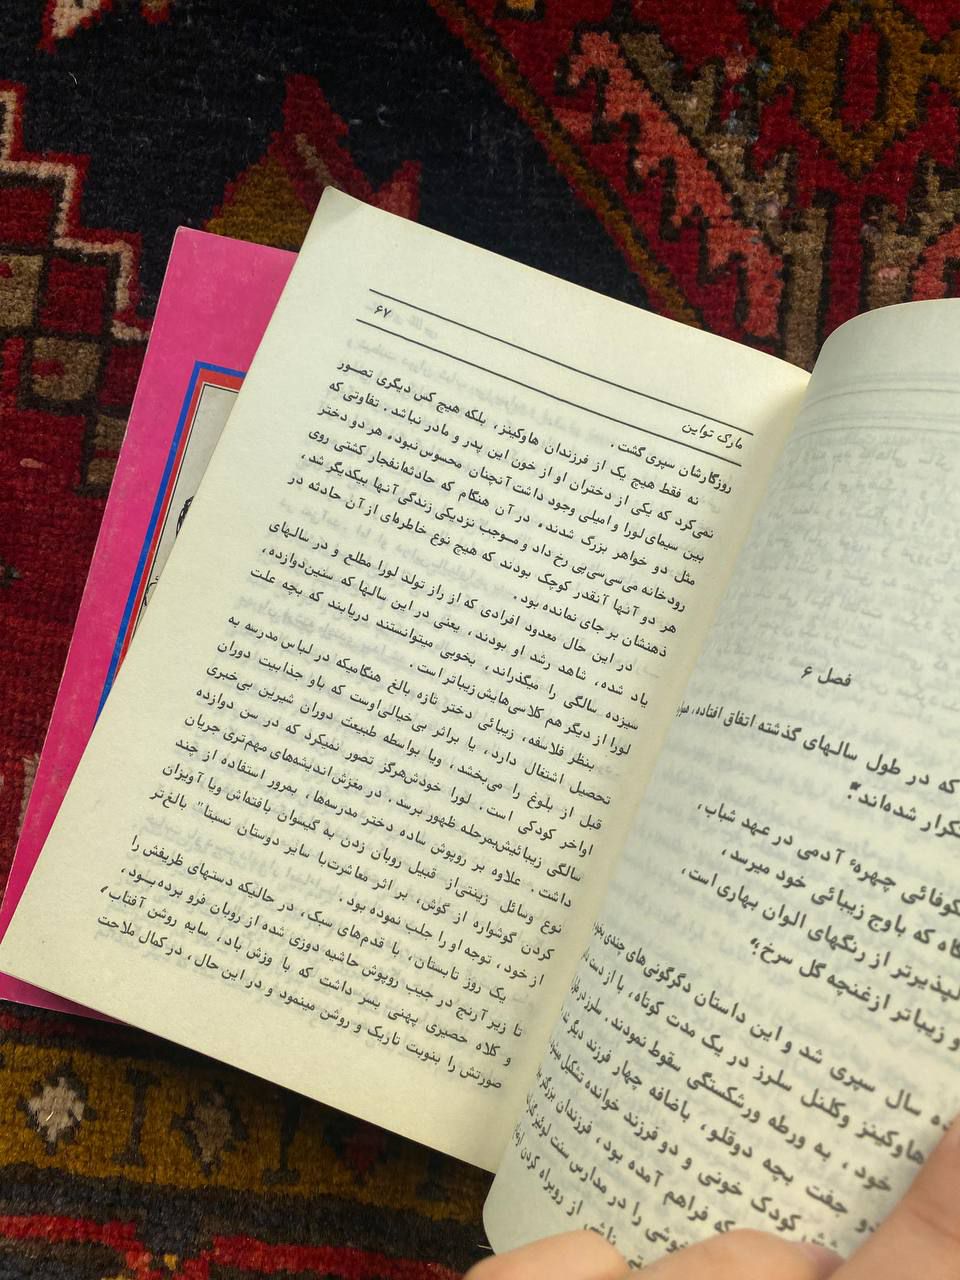 فصل ۶
که در طول سالهای گذشته اتفاق افتاده،
تکرار شده‌اند"
چهره⁠ٔ آدمی در عهد شباب،
گاه که باوج زیبائی خود میرسد،
لپذیرتر از رنگهای الوان بهاری است،
و زیباتر ازغنچه گل سرخ"
ده سال سپری شد و این داستان دگرگونی‌های چندی
هاوکینز وکلنل سلرز در یک مدت کوتاه، با از دست
خود، به ورطه ورشکستگی سقوط نمودند.
دو جفت بچه دوقلو، باضافه چهار فرزند دیگر
کودک خونی و دو فرزند خوانده تشکیل
که فراهم آمده بود، فرزندان بزرگتر
خوشی را در مدارس سنت لوئیز
از روبراه کردن
مارک تواین ۶۷
روزگارشان سپری گشت .
نه فقط هیچ یک از فرزندان هاوکینز، بلکه هیچ کس دیگری تصور
نمی‌کرد که یکی از دختران او از خون این پدر و مادر نباشد . تفاوتی که
بین سیمای لورا و امیلی وجود داشت آنچنان محسوس نبود، هر دو دختر
مثل دو خواهر بزرگ شدند. در آن هنگام که حادثه‌انفجار کشتی روی
رودخانه می‌سی‌سی‌پی رخ داد و موجب نزدیکی زندگی آنها بیکدیگر شد،
هر دو آنها آنقدر کوچک بودند که هیچ نوع خاطره‌ای از آن حادثه در
ذهنشان بر جای نمانده بود.
در این حال معدود افرادی که از راز تولد لورا مطلع و در سالهای
یاد شده، شاهد رشد او بودند، یعنی در این سالها که سنین‌دوازده،
سیزده سالگی را میگذراند، بخوبی میتوانستند دریابند که بچه علت
لورا از دیگر هم کلاسی‌هایش‌زیباتر است.
بنظر فلاسفه، زیبائی دختر تازه بالغ هنگامیکه در لباس مدرسه به
تحصیل اشتغال دارد، یا براثر بی‌خیالی‌اوست که باو جذابیت دوران
قبل از بلوغ را می‌بخشد، ویا بواسطه طبیعت دوران شیرین بی‌خبری
اواخر کودکی است. لورا خودش‌هرگز تصور نمیکرد که در سن دوازده
سالگی زیبائیش‌بمرحله ظهور برسد. در مغزش‌اندیشه‌های مهم‌تری جریان
داشت. علاوه بر روپوش ساده دختر مدرسه‌ها، بمرور استفاده از چند
نوع وسائل زینتی‌از قبیل روبان زدن به گیسوان بافته‌اش ویا آویزان
کردن گوشواره از گوش، بر اثر معاشرت‌با سایر دوستان نسبتا" بالغ‌تر
از خود، توجه او را جلب نموده بود.
یک روز تابستان، با قدم‌های سبک، در حالیکه دستهای ظریفش را
تا زیر آرنج در جیب روپوش حاشیه دوزی شده از روبان فرو برده‌بود،
و کلاه حصیری پهنی بسر داشت که با وزش باد، سایه روشن آفتاب،
صورتش را بنوبت تاریک و روشن مینمود و در این حال، در کمال ملاحت